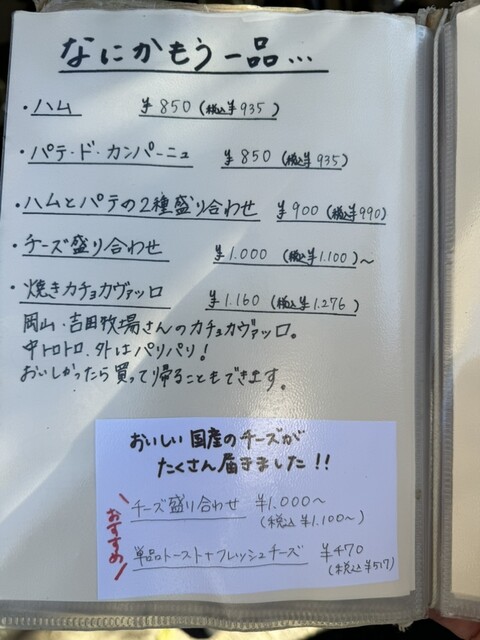 なにかもう一品...
・ハム ¥850(税込¥935)
・パテ・ド・カンパーニュ ¥850(税込¥935)
・ハムとパテの2種盛り合わせ ¥900(税込¥990)
・チーズ盛り合わせ ¥1.000(税込¥1.100)〜
・焼きカチョカヴァッロ ¥1.160(税込¥1.276)
岡山・吉田牧場さんのカチョカヴァッロ。
中トロトロ、外はパリパリ!
おいしかったら買って帰ることもできます。
おいしい国産のチーズが
たくさん届きました!!
おすすめ
チーズ盛り合わせ ¥1.000〜
(税込¥1.100〜)
単品トースト+フレッシュチーズ ¥470
(税込¥517)